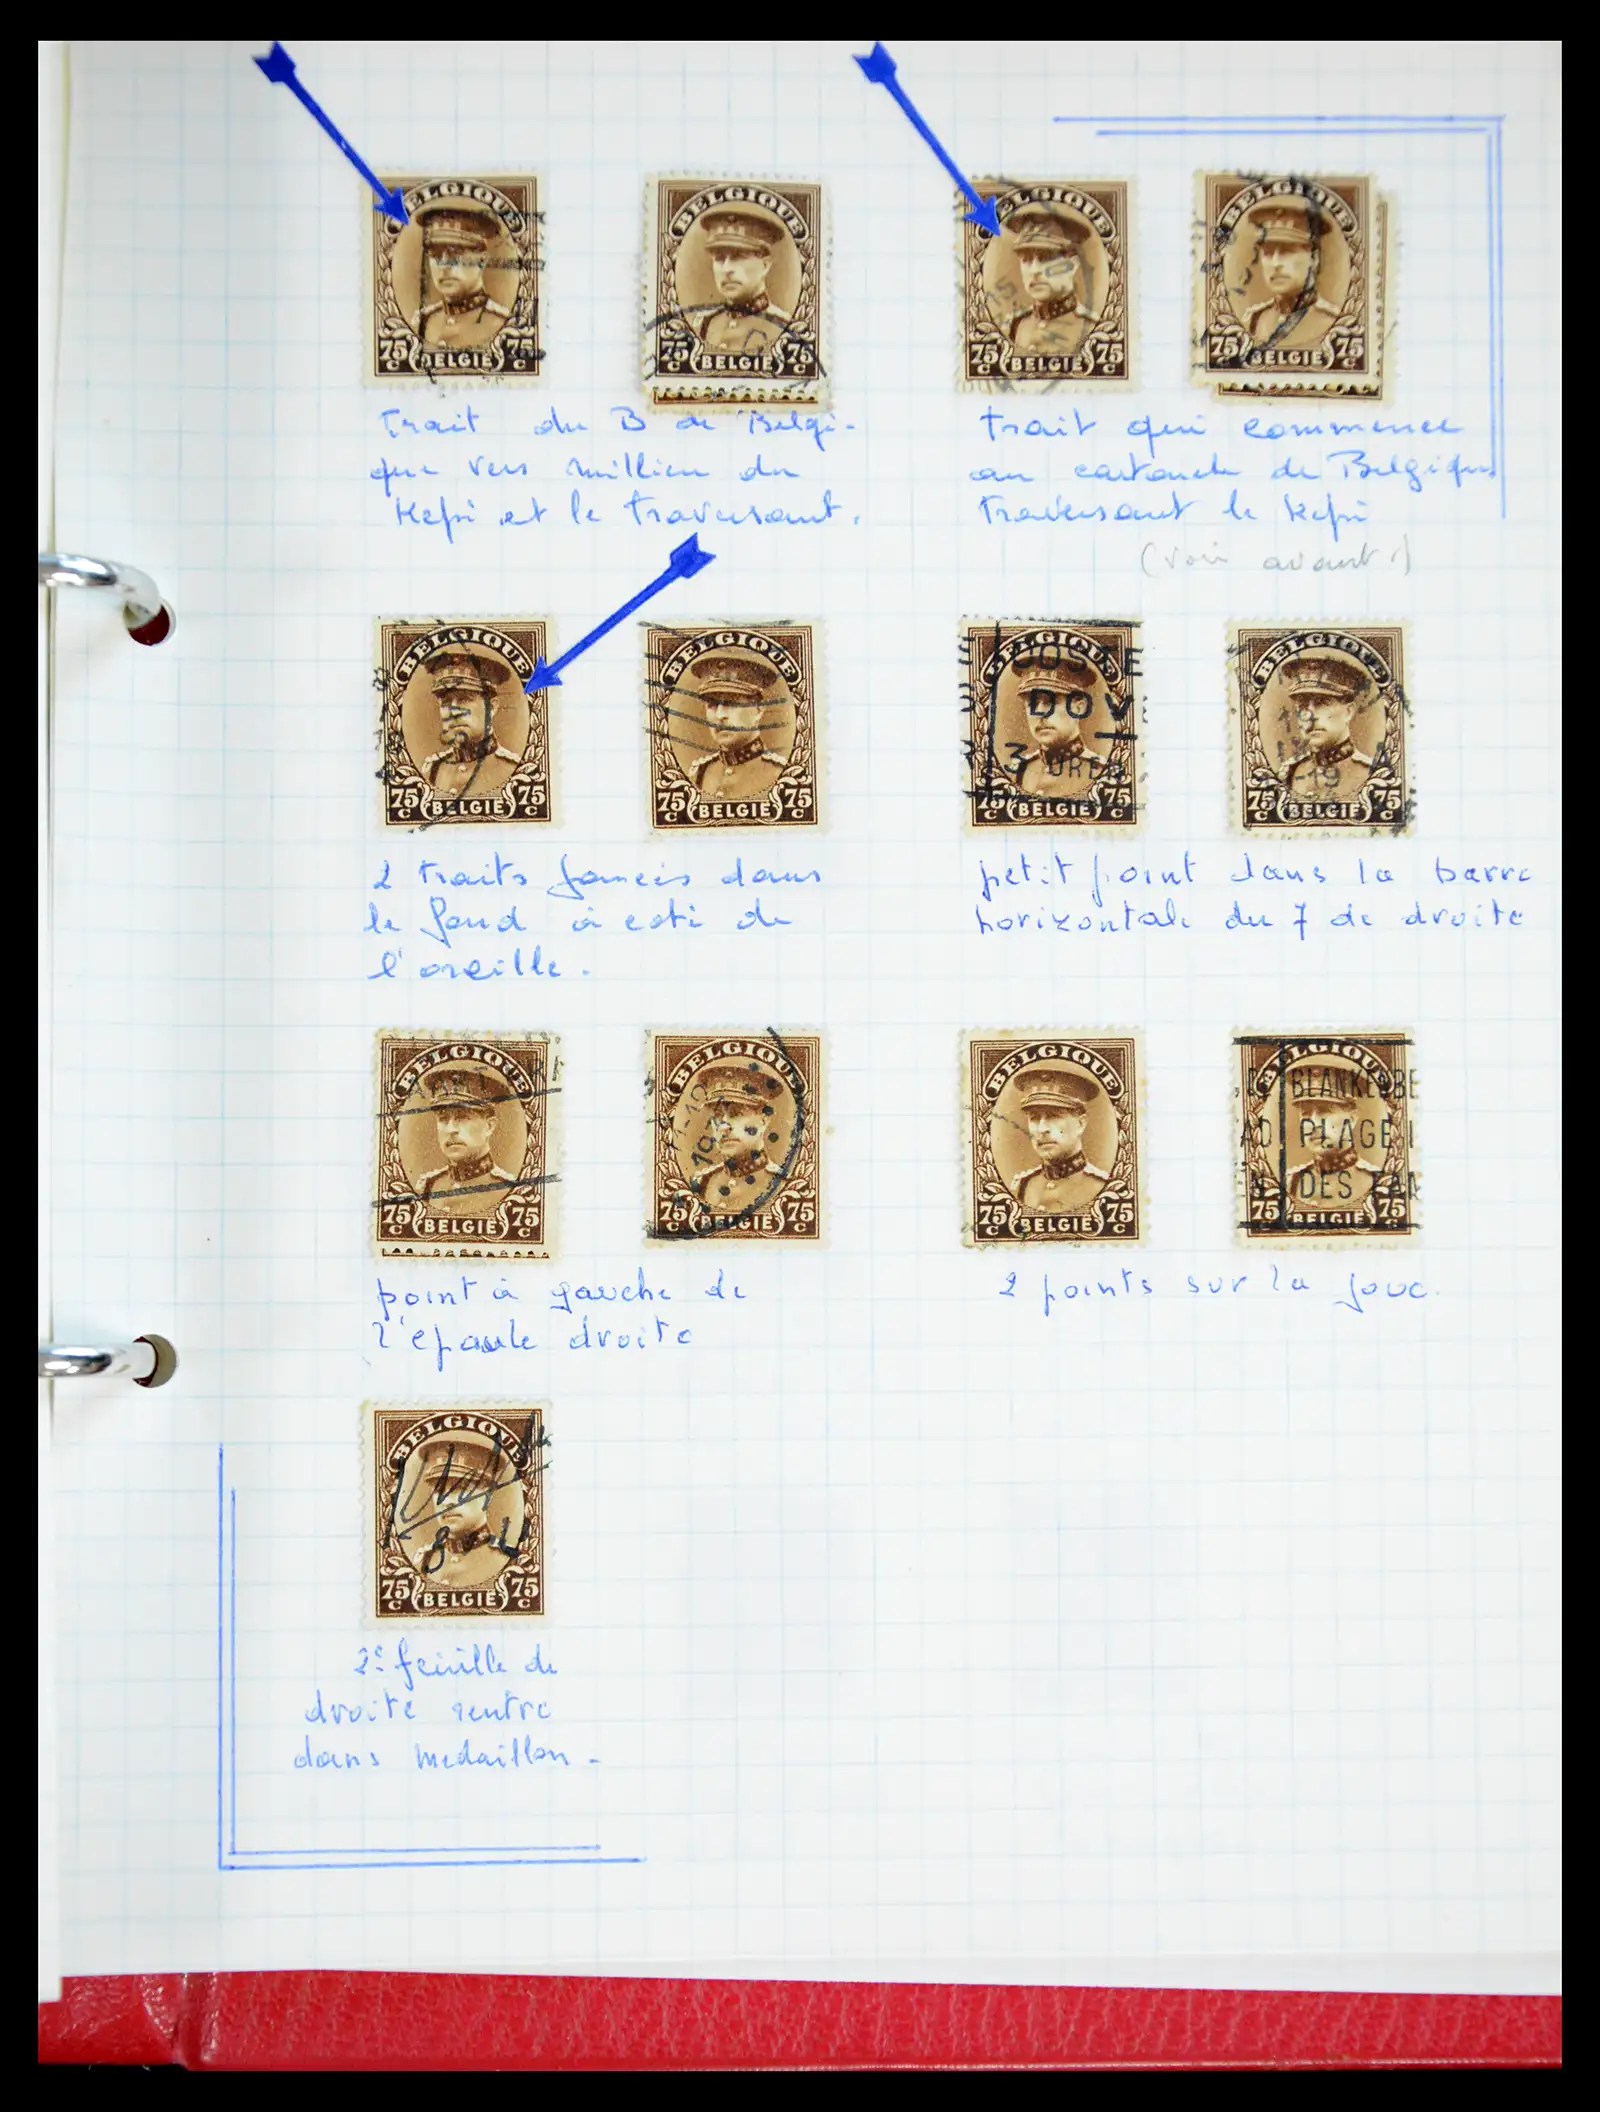 BELGIQUE BELGIQUE BELGIQUE BELGIQUE
75 75 75 75 75 75 75 75
C BELGIE C BELGIE C BELGIE C BELGIE C
trait du B de Belgi-
que vers millieu du
Kepi et le traversant.
trait qui commence
au cartouche de Belgique
traversant le Kepi
(voir avant.)
BELGIQUE BELGIQUE BELGIQUE BELGIQUE
OOSTE
DOV
3 UREN
19
-19 A
75 75 75 75 75 75 75 75
C BELGIE C C BELGIE C BELGIE C C BELGIE C
2 traits foncés dans
le fond à coté de
l'oreille.
petit point dans la barre
horizontale du 7 de droite
BELGIQUE BELGIQUE BELGIQUE BELGIQUE
1-19
193
BLANKENBE
PLAGE
DES
75 75 75 75 75 75 75 75
C BELGIE C C BELGIE C C BELGIE C BELGIE C
point à gauche de
l'épaule droite
2 points sur la joue.
BELGIQUE
75 75
C BELGIE C
2e feuille de
droite rentre
dans medaillon -